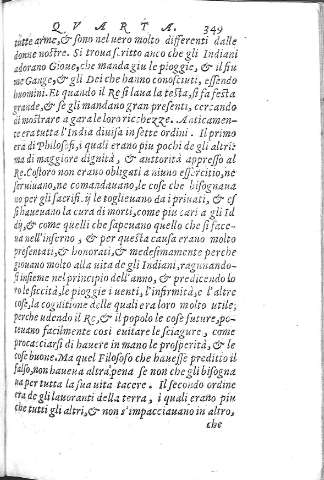 QVARTA. 349
tutte arme, & sono nel uero molto differenti dalle
donne nostre. Si troua scritto anco che gli Indiani
adorano Gioue, che manda giu le pioggie, & il fiu
me Gange, & gli Dei che hanno conosciuti, essendo
huomini. Et quando il Re si laua la testa, si fa festa
grande, & se gli mandano gran presenti, cercando
di mostrare a gara le loro ricchezze. Anticamen-
te era tutta l'India diuisa in sette ordini. Il primo
era di Philosofi, i quali erano piu pochi de gli altri:
ma di maggiore dignità, & autorità appresso al
Re. Costoro non erano obligati a niuno essercitio, ne
seruiuano, ne comandauano, le cose che bisognaua
no per gli sacrifi. ij le toglieuano da i priuati, & es
si haueuano la cura di morti, come piu cari a gli Id
dij, & come quelli che sapeuano quello che si face-
ua nell'inferno, & per questa causa erano molto
presentati, & honorati, & medesimamente perche
giouano molto alla uita de gli Indiani, ragunando-
si insieme nel principio dell'anno, & predicendo lo
ro le siccità, le pioggie i uenti, l'infirmità, e l'altre
cose, la cognitione delle quali era loro molto utile;
perche udendo il Re, & il popolo le cose future, po-
teuano facilmente cosi euitare le sciagure, come
procacciarsi di hauere in mano le prosperità, & le
cose buone. Ma quel Filosofo che hauesse preditto il
falso, non haueua altra pena se non che gli bisogna
ua per tutta la sua uita tacere. Il secondo ordine
era de gli lauoranti della terra, i quali erano piu
che tutti gli altri, & non s'impacciauano in altro,
che